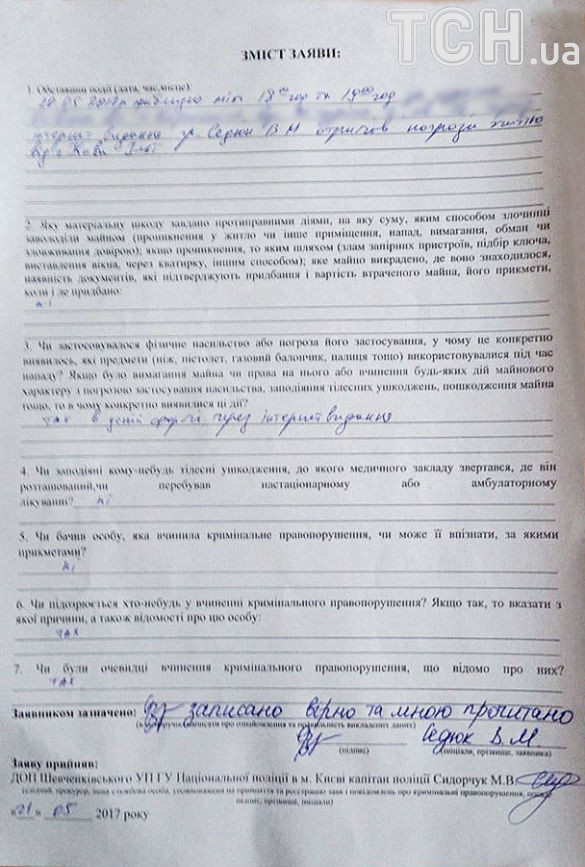 ТСН.ua
ЗМІСТ ЗАЯВИ:
1. Обставини події (дата, час, місце)
між 18 00 год та 19 00 год
інтернет видання гр. Седюк В М отримав погрози
2. Яку матеріальну шкоду завдано протиправними діями, на яку суму, яким способом злочинці
заволоділи майном (проникнення у житло чи інше приміщення, напад, вимагання, обман чи
зловживання довірою); якщо проникнення, то яким шляхом (злам запірних пристроїв, підбір ключа,
виставлення вікна, через кватирку, іншим способом); яке майно викрадено, де воно знаходилося,
наявність документів, які підтверджують придбання і вартість втраченого майна, його прикмети,
коли і де придбано:
ні
3. Чи застосовувалося фізичне насильство або погроза його застосування, у чому це конкретно
виявилось, які предмети (ніж, пістолет, газовий балончик, палиця тощо) використовувалися під час
нападу? Якщо було вимагання майна чи права на нього або вчинення будь-яких дій майнового
характеру з погрозою застосування насильства, заподіяння тілесних ушкоджень, пошкодження майна
тощо, то в чому конкретно виявилися ці дії?
так в усній формі через інтернет видання
4. Чи заподіяні кому-небудь тілесні ушкодження, до якого медичного закладу звертався, де він
розташований,чи перебував настаціонарному або амбулаторному
лікуванні? ні
5. Чи бачив особу, яка вчинила кримінальне правопорушення, чи може її впізнати, за якими
прикметами?
ні
6. Чи підозрюється хто-небудь у вчиненні кримінального правопорушення? Якщо так, то вказати з
якої причини, а також відомості про цю особу:
так
7. Чи були очевидці вчинення кримінального правопорушення, що відомо про них?
так
Заявником зазначено: записано вірно та мною прочитано
(підпис) Седюк В.М.
(ініціали, прізвище, заявника)
Заяву прийняв:
ДОП Шевченківського УП ГУ Національної поліції в м. Києві капітан поліції Сидорчук М.В.
(слідчий, прокурор, інша службова особа, уповноважена на прийняття та реєстрацію заяв і повідомлень про кримінальні правопорушення, посада
підпис, прізвище, ініціали)
«21» 05 2017 року